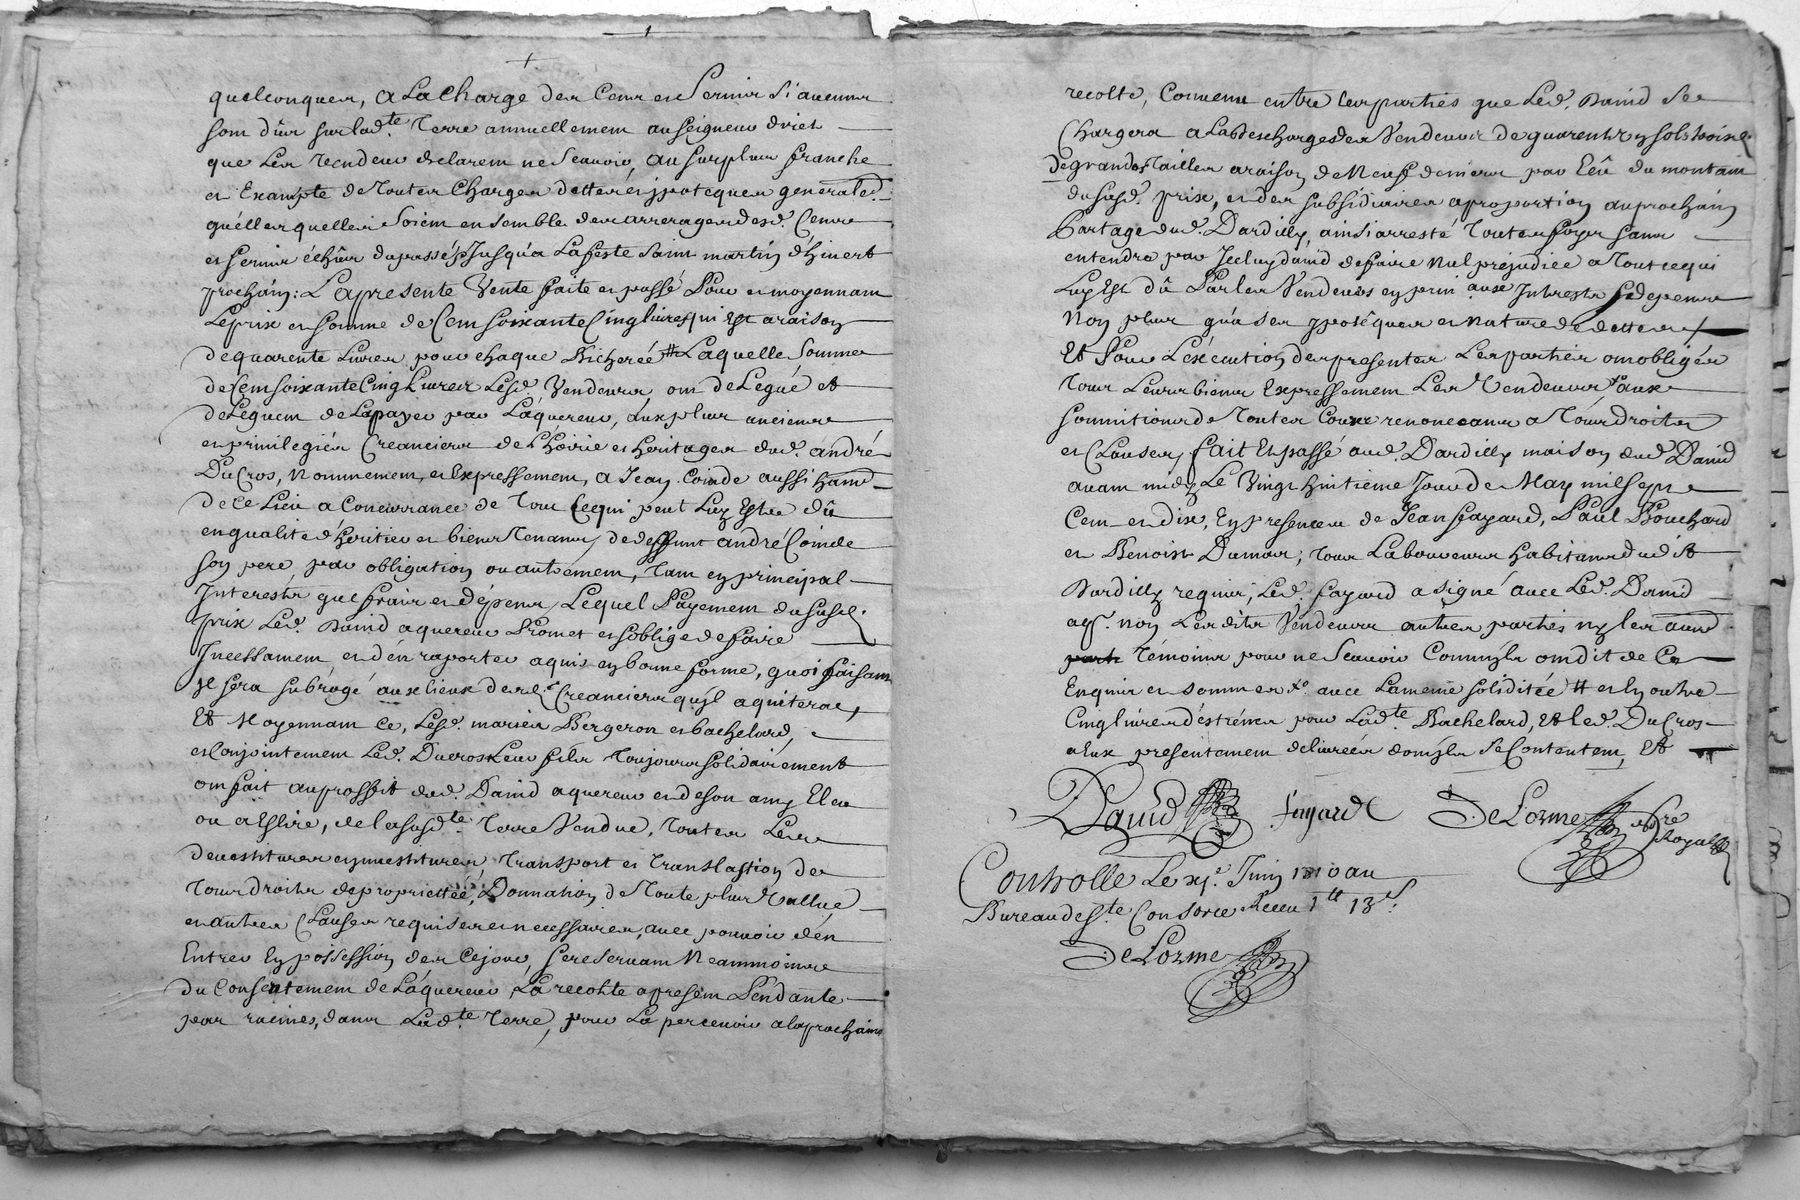 quelconques, a La Charge des Cens et Servis Si aucuns
sont dûs sur lad.te Terre annuellement au Seigneur direct
que Les Vendeurs declarent ne Scavoir, au surplus franche
et Exampte de Toutes Charges dettes et ypoteques generalles
quelles quelles Soient ensemble des arrerages desd. Cens
et servis échûs du passé Jusqu'a La feste Saint martin d'hivert
prochain: La presente Vente faite et passé Pour et moyennant
Le prix et somme de Cent soixante Cinq Livres qui Est a raison
de quarente Livres pour chaque Bicherée # Laquelle Somme
de Cent soixante Cinq Livres Lesd. Vendeurs ont deLegué et
deLeguent de La payer par L'aquereur, aux plus anciens
et privilegiés Creanciers de L'hoirie et heritages dud. andré
DuCros, Nommement et Expressement, a Jean Coinde aussi habit.
de Ce Lieu a Concurrance de Tout Ce qui peut Luy Estre dû
en qualité d'héritier et biens Tenant de deffunt andré Coinde
son pere par obligation ou autrement, Tant en principal
Interests que frais et dépens, Lequel Payement du susd.
prix Led. David aquereur Promet et s'oblige de faire
Incessament, et d'en raporter aquis en bonne forme, quoi faisant
Il sera subrogé aux lieux desd. Creanciers qu'il aquiterat,
Et Moyennant Ce, Lesd. mariés Bergeron et bachelard,
et Conjointement Led. Ducros Leur fils Toujours solidairement
ont fait au proffit dud. David aquereur et de son amy Eleu
ou a Eslire, de La susd.te Terre Vendue, Toutes Les
devestitures enjuestitures, Transport et Translastion de
Tous droits de proprietté, Donnation de Toute plus Vallue
et autres Clauses requises et necessaires, avec pouvoir d'en
Entrer En possession des Ce jour, se reservant Neammoins
du Consentement de L'aquereur, La recolte a present Pendante
par racines, dans Lad.te Terre, pour La percevoir a la prochaine
recolte, Convenu entre Les parties que Led. David Se
Chargera a La descharge des Vendeurs de quarente sols trois d.
de grandes Tailles a raison de Neuf deniers par Écû du montant
du susd. prix, et des subsidiaires a proportion au prochain
Partage dud. Dardilly, ainsi arresté Toutes foys sans
entendre par Icelluy david de faire Nul prejudice a Tout ce qui
Luy Est dû Par Les Vendeurs en prin.al aux Interests et depens
Non plus qu'a ses ypotêques et Nature de dettes
Et Pour L'exécution des presentes Les parties ont obligés
Tous Leurs biens Expressement Les Vendeurs aux
soumitions de Toutes Cours renoncants a Tous droits
et Clauses, fait Et passé aud. Dardilly maison dud. David
avant midy Le Vingt huitieme Jour de May mil sept
Cent et dix, En presence de Jean fayard, Paul Bouchard
et Benoist Dumas, Tous Laboureurs habitants dud.
Dardilly requis, Led. fayard a signé avec Led. David
aq.r non Les dits Vendeurs autres parties ny les autres
Témoins pour ne Scavoir Comm'ils ont dit de Ce
Enquis et sommes avec La meme soliditée # et En outre
Cinq livres d'éstrénes pour Lad.te Bachelard, Et led. DuCros
a Eux presentement delivrées dont ils Se Contentent, Et
David fayard DeLorme no.re Royal
Controlle Le xj.e Juin 1710 au
Bureau de S.te Consorce Receu 1 lt 13 s.
DeLorme